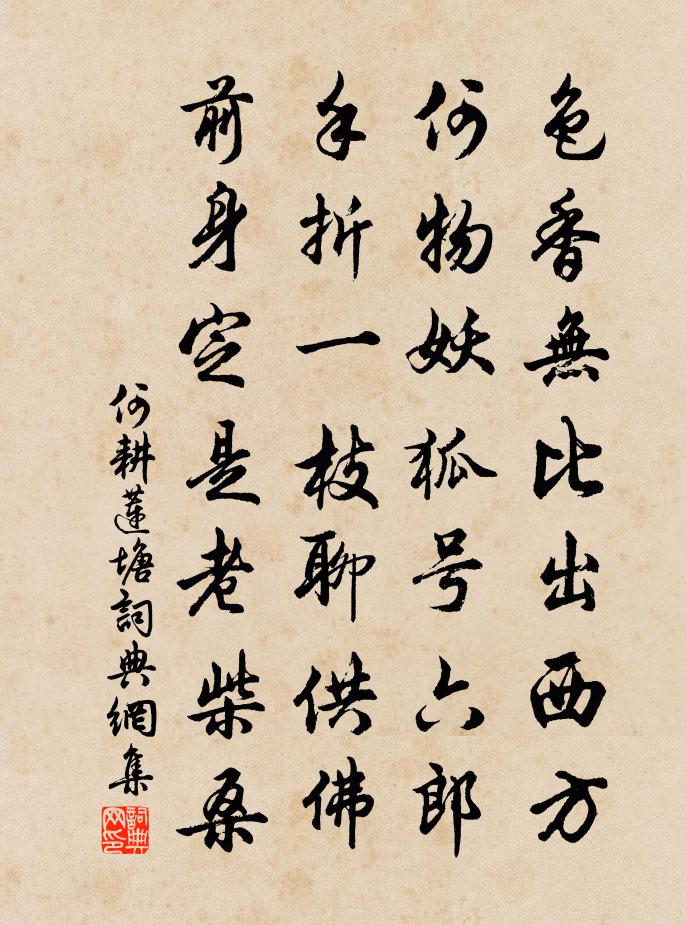 色香無比出西方
何物妖狐号六郎
手折一枝聊供佛
前身定是老柴桑
何耕蓮塘詞典網集
詞典
网印